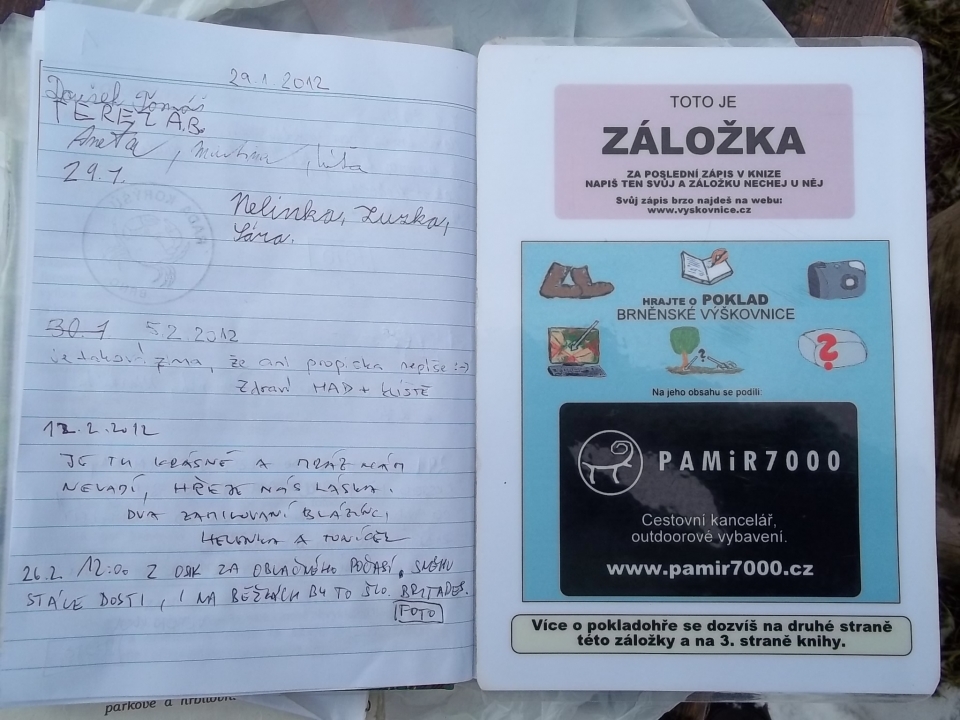 29.1. 2012
Doušek Tomáš
TEREZ A.B.
Aneta, Martina,
29.1.
Nelinka, Zuzka,
Sára.
30.1 5.2.2012
je taková zima, že ani propiska nepíše :-)
Zdraví HAD + KLÍŠTĚ
12.2.2012
JE TU KRÁSNĚ A MRÁZ NÁM
NEVADÍ, HŘEJE NÁS LÁSKA.
DVA ZAMILOVANÍ BLÁZÍNCI
HELENKA A TONÍČEK
26.2. 12:00 Z OSK ZA OBLAČNÉHO POČASÍ, SNĚHU
STÁLE DOSTI, I NA BĚŽKÁCH BY TO ŠLO. BRITADES.
FOTO
parkové a hřbitovn.
TOTO JE
ZÁLOŽKA
ZA POSLEDNÍ ZÁPIS V KNIZE
NAPIŠ TEN SVŮJ A ZÁLOŽKU NECHEJ U NĚJ
Svůj zápis brzo najdeš na webu:
www.vyskovnice.cz
HRAJTE O POKLAD
BRNĚNSKÉ VÝŠKOVNICE
?
?
Na jeho obsahu se podílí:
PAMiR7000
Cestovní kancelář,
outdoorové vybavení.
www.pamir7000.cz
Více o pokladohře se dozvíš na druhé straně
této záložky a na 3. straně knihy.